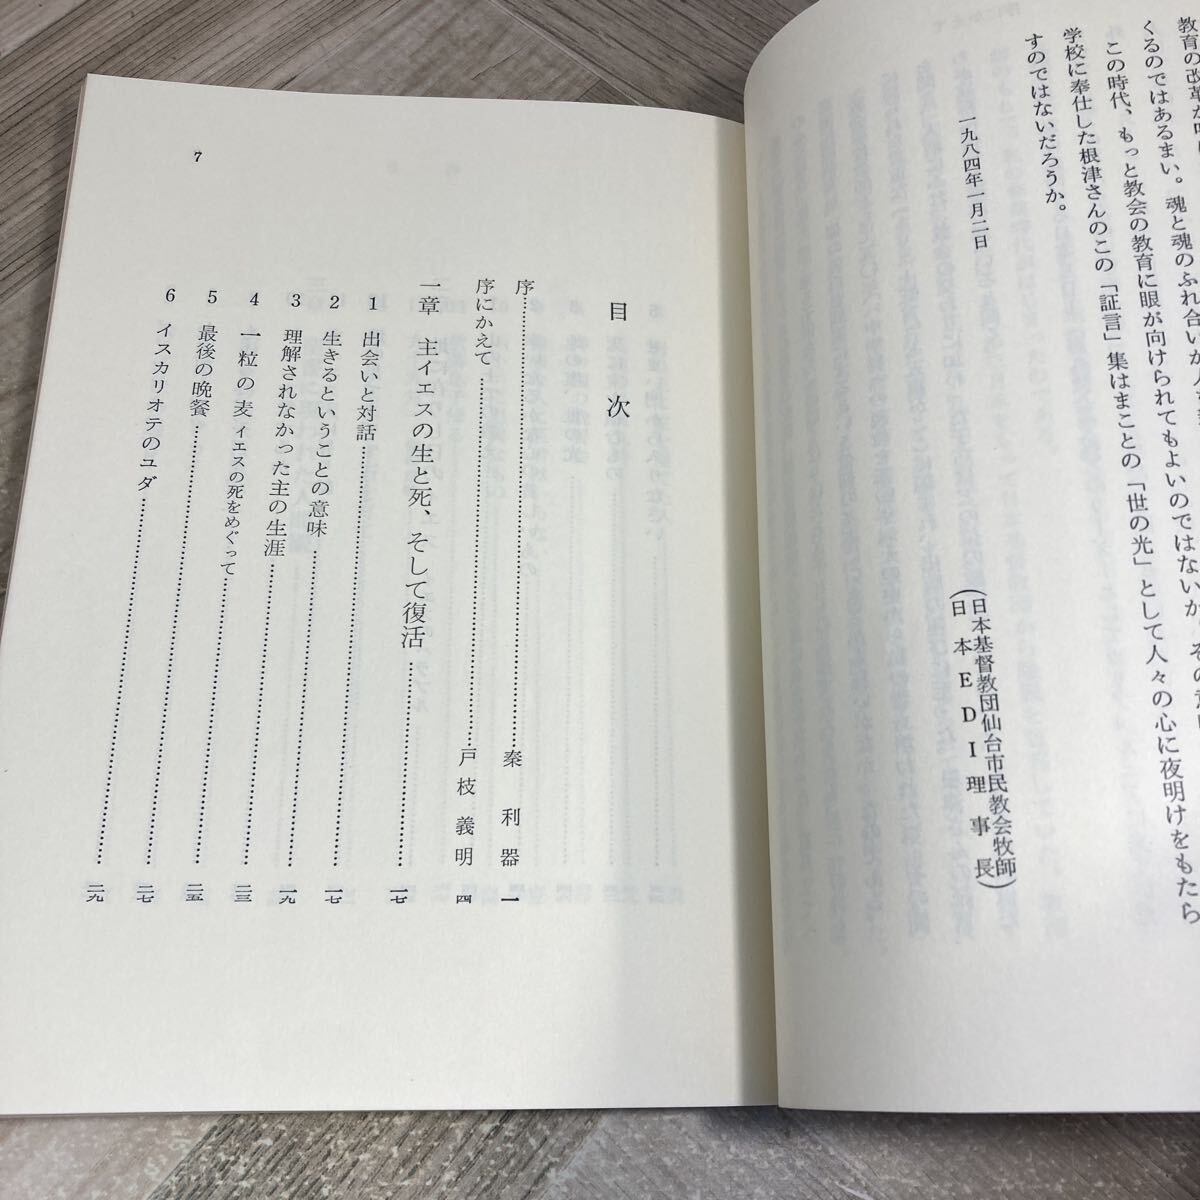 教育の改革が叫
くるのではあるまい。魂と魂のふれ合いが
この時代、もっと教会の教育に眼が向けられてもよいのではないか。その
学校に奉仕した根津さんのこの「証言」集はまことの「世の光」として人々の心に夜明けをもたら
すのではないだろうか。
一九八四年一月二日
(日本基督教団仙台市民教会牧師
日本EDI理事長)
目次
序……秦利器 一
序にかえて……戸枝義明 四
一章 主イエスの生と死、そして復活……一七
1 出会いと対話……一七
2 生きるということの意味……一九
3 理解されなかった主の生涯……二三
4 一粒の麦 イエスの死をめぐって……二五
5 最後の晩餐……二七
6 イスカリオテのユダ……二九
7